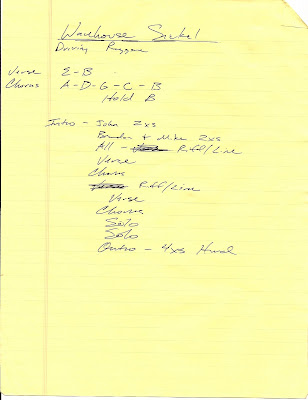 Warehouse
Driving Reggae
Verse E-B
Chorus A-D-G-C-B
Hold B
Intro - John 2xs
Brandon + Mike 2xs
All - Riff/Line
Verse
Chorus
Riff/Line
Verse
Chorus
Solo
Solo
Outro - 4xs